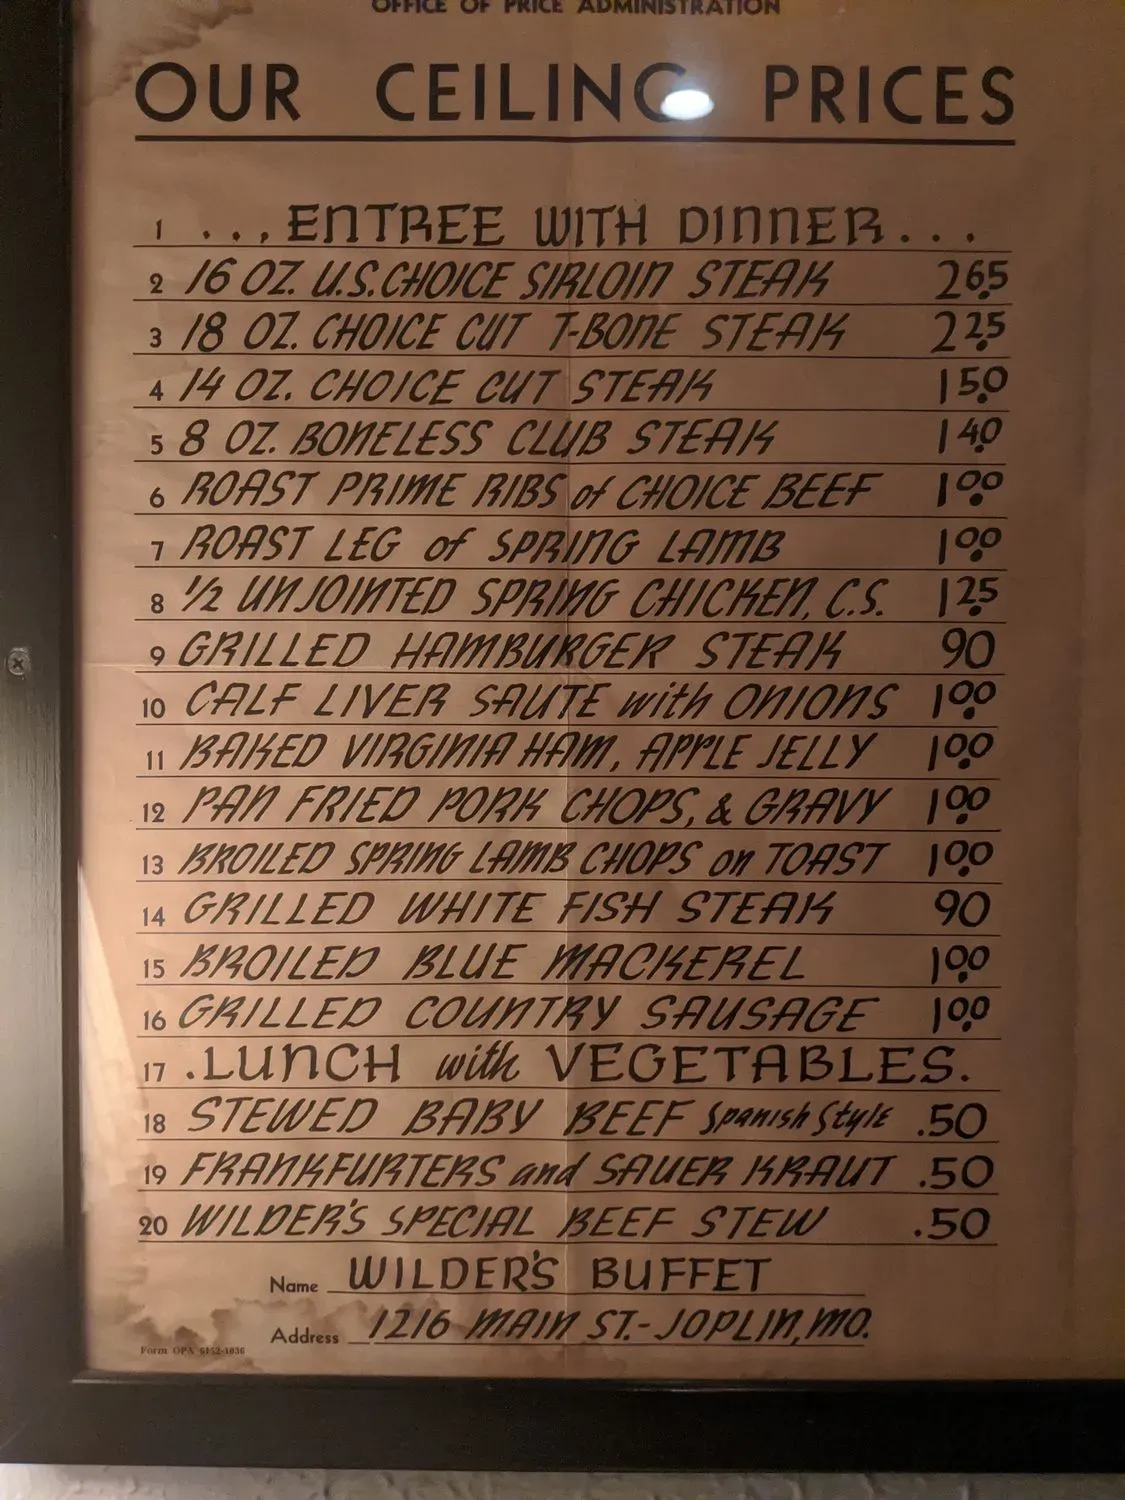 OFFICE OF PRICE ADMINISTRATION
OUR CEILING PRICES
1 ...ENTREE WITH DINNER...
2 16 OZ. U.S. CHOICE SIRLOIN STEAK 2.65
3 18 OZ. CHOICE CUT T-BONE STEAK 2.25
4 14 OZ. CHOICE CUT STEAK 1.50
5 8 OZ. BONELESS CLUB STEAK 1.40
6 ROAST PRIME RIBS of CHOICE BEEF 1.00
7 ROAST LEG of SPRING LAMB 1.00
8 1/2 UNJOINTED SPRING CHICKEN, C.S. 1.25
9 GRILLED HAMBURGER STEAK 90
10 CALF LIVER SAUTE with ONIONS 1.00
11 BAKED VIRGINIA HAM, APPLE JELLY 1.00
12 PAN FRIED PORK CHOPS, & GRAVY 1.00
13 BROILED SPRING LAMB CHOPS on TOAST 1.00
14 GRILLED WHITE FISH STEAK 90
15 BROILED BLUE MACKEREL 1.00
16 GRILLED COUNTRY SAUSAGE 1.00
17 .LUNCH with VEGETABLES.
18 STEWED BABY BEEF Spanish Style .50
19 FRANKFURTERS and SAUER KRAUT .50
20 WILDER'S SPECIAL BEEF STEW .50
Name WILDER'S BUFFET
Address 1216 MAIN ST.-JOPLIN, MO.
Form OPA 6152-1036